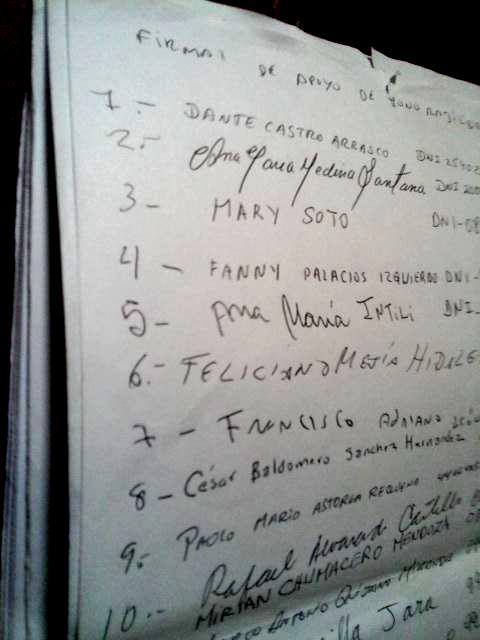 FIRMAS DE APOYO DE
1.- DANTE CASTRO ARRASCO DNI 25402
2.- Ana Maria Medina Santana DNI
3- MARY SOTO DNI-08
4- FANNY PALACIOS IZQUIERDO DNI-
5- Ana María INTILI DNI-
6.- FELICIANO MEJÍA HIDALG
7- FRANCISCO ADRIANO
8- César Baldomero Sanchez Hernandez
9.- PAOLO MARIO ASTORGA REQUENA
10.- Rafael Alvarado Castillo
MIRIAN CAUMACERO MENDOZA
ANTONIO
Jara